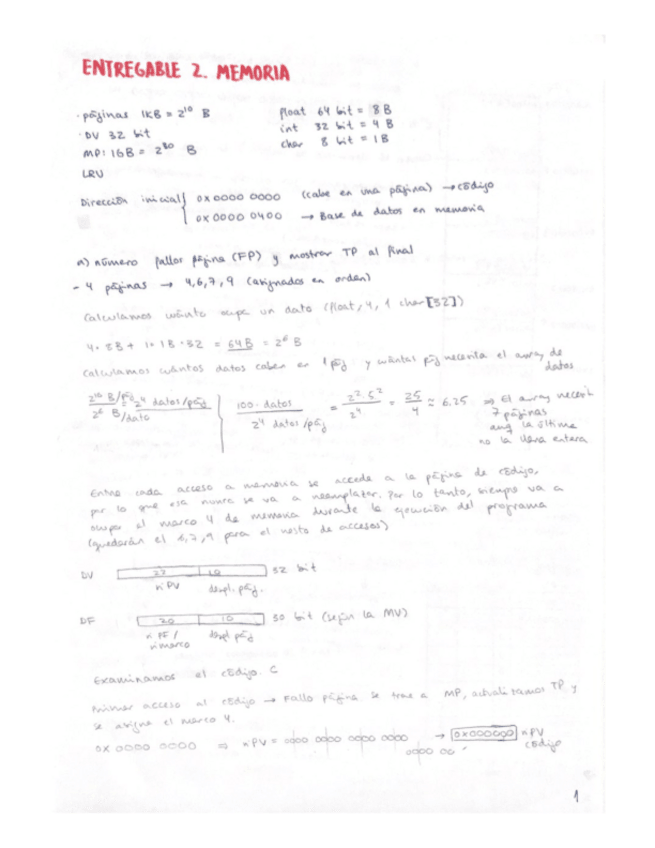 ENTREGABLE 2. MEMORIA
· páginas 1KB = 2¹⁰ B
float 64 bit = 8B
· DV 32 bit
int 32 bit = 4B
MP: 1GB = 2³⁰ B
char 8 bit = 1B
LRU
Dirección inicial { 0x0000 0000 (cabe en una página) → código
0x0000 0400 → Base de datos en memoria
a) número fallos página (FP) y mostrar TP al final
- 4 páginas → 4,6,7,9 (asignados en orden)
Calculamos cuánto ocupa un dato (float, 4, 1 char[32])
4·8B + 1·1B·32 = 64B = 2⁶ B
Calculamos cuántos datos caben en 1 pág y cuántas pág necesita el array de datos
2¹⁰ B/pág / 2⁶ B/dato = 2⁴ datos/pág
100 datos / 2⁴ datos/pág = 2²·5² / 2⁴ = 25 / 4 ≈ 6.25 ⇒ El array necesit
7 páginas
aunq la última
no la llena entera
Entre cada acceso a memoria se accede a la página de código,
por lo que esa nunca se va a reemplazar. Por lo tanto, siempre va a
ocupar el marco 4 de memoria durante la ejecución del programa
(quedarán el 6,7,9 para el resto de accesos)
DV 22 10 32 bit
nPV despl. pág.
DF 20 10 30 bit (según la MV)
nPF / nmarco despl pág
Examinamos el código C
Primer acceso al código → Fallo página se trae a MP, actualizamos TP y
se asigna el marco 4.
0x 0000 0000 ⇒ nPV = 0000 0000 0000 0000 0000 00 → 0x000000 nPV código
1